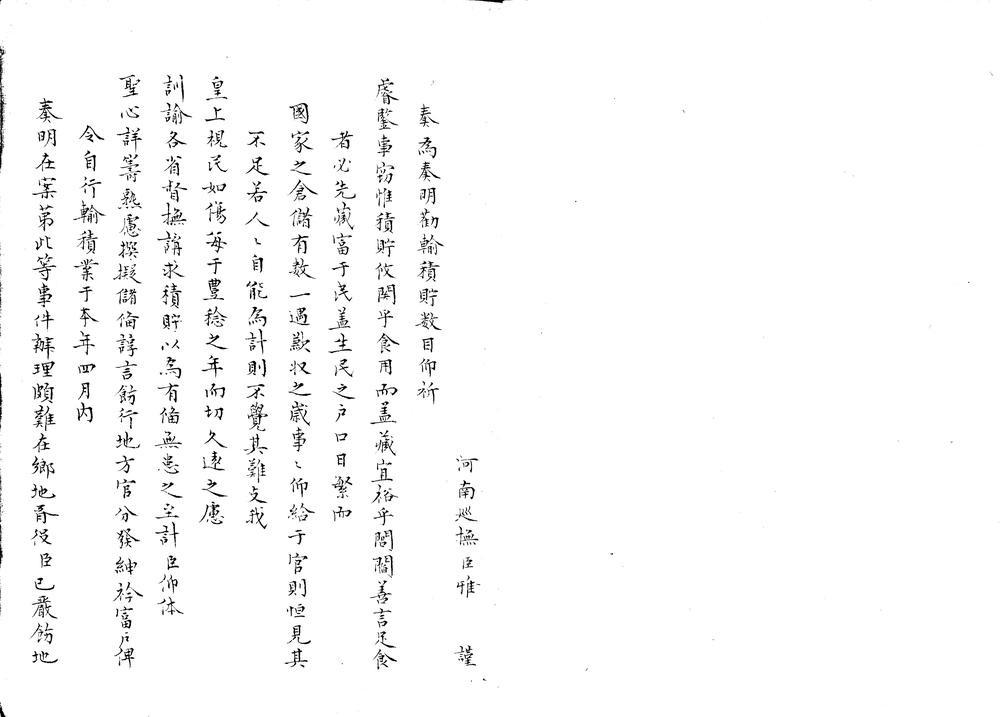 河南巡撫臣雅　謹
奏為奏明勸輸積貯数目仰祈
睿鑒事竊惟積貯攸関乎食用而盖藏宜裕乎閭閻善言足食
者必先藏富于民盖生民之户口日繁而
國家之倉儲有数一遇歉収之歳事〻仰給于官則恒見其
不足若人〻自能為計則不覺其難支我
皇上視民如傷每于豐稔之年而切久遠之慮
訓諭各省督撫講求積貯以為有偹無患之至計臣仰体
聖心詳籌熟慮撰擬儲偹諄言飭行地方官分發紳衿富户俾
令自行輸積業于本年四月内
奏明在案第此等事件辦理頗難在鄉地胥役臣已嚴飭地